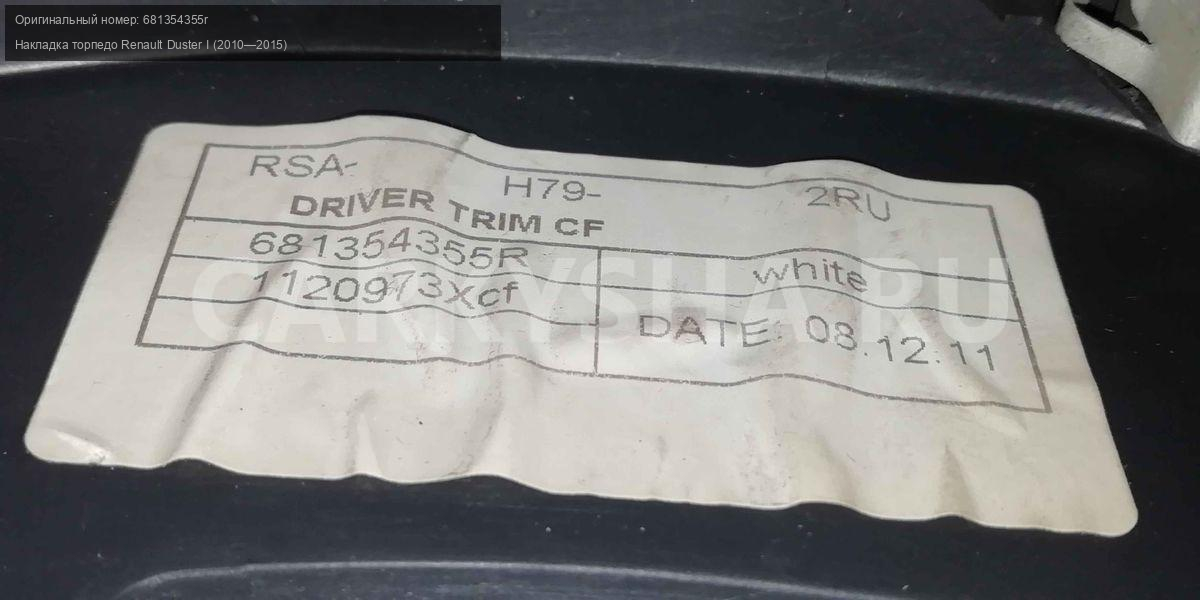 Оригинальный номер: 681354355r
Накладка торпедо Renault Duster I (2010—2015)
RSA- H79- 2RU
DRIVER TRIM CF
681354355R white
1120973Xcf
DATE: 08.12.11
CARRYSHA.RU